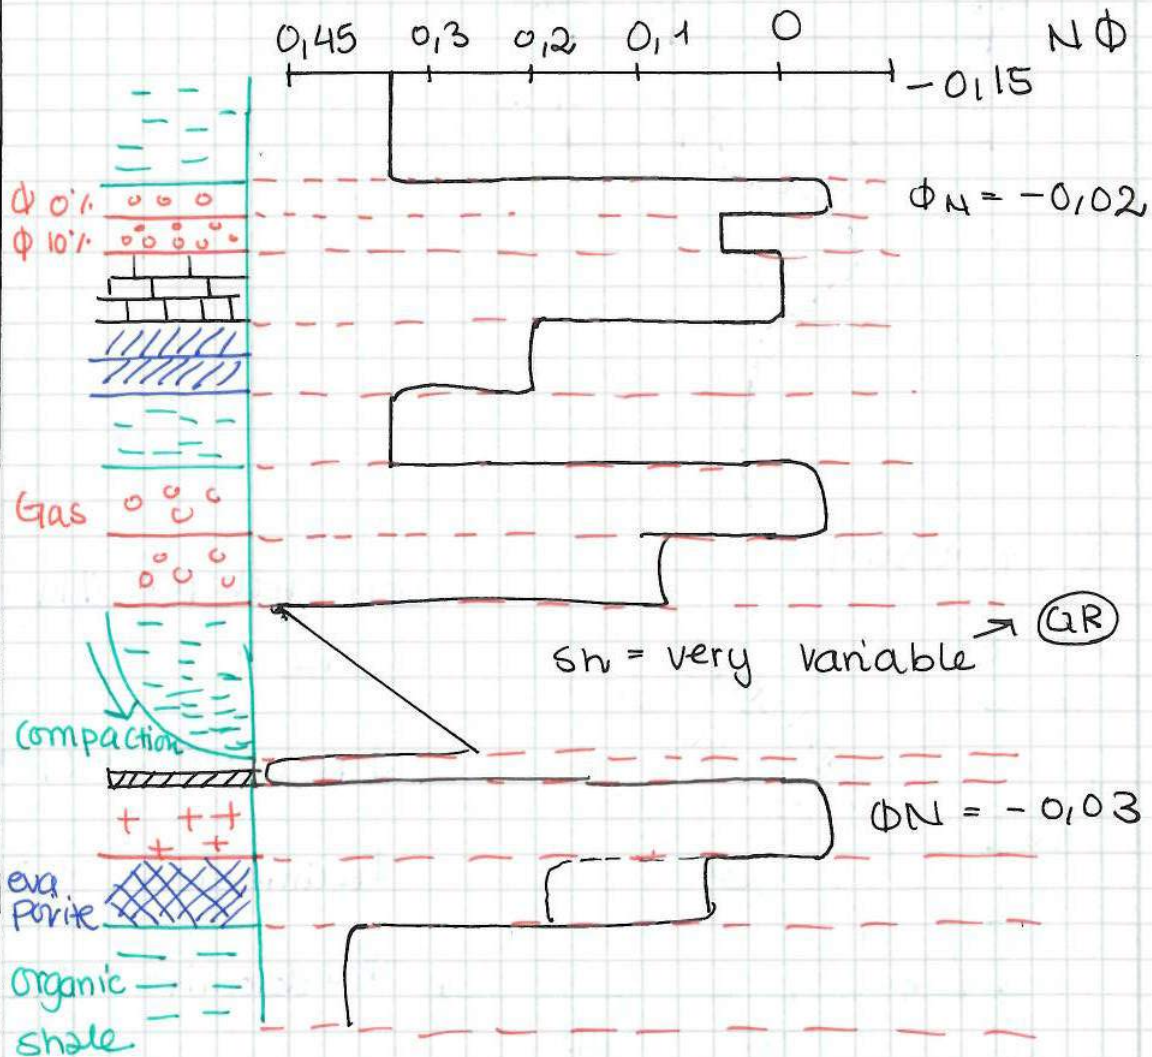 0,45 0,3 0,2 0,1 0 NΦ
-0,15
Φ 0%
ΦN = -0,02
Φ 10%
Gas
sh = very variable → GR
compaction
ΦN = -0,03
eva
porite
organic
shale